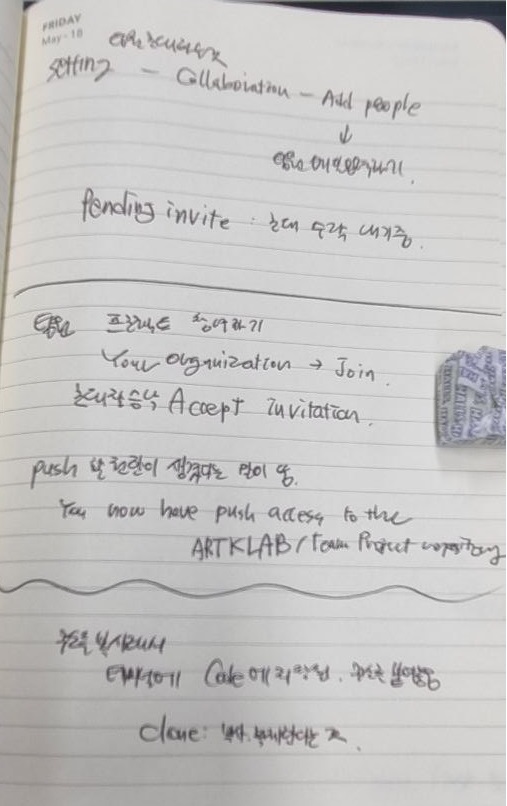 FRIDAY
May - 18
팀원 초대하는 것
Setting - Collaboration - Add people
↓
팀원
Pending invite : 초대 수락 대기중.
팀원 프로젝트 참여하기
Your organization → Join.
초대장 승낙 Accept Invitation.
push 할 권한이 생겼다는 말이 뜸.
You now have push access to the
ARTKLAB / Team Project repository
주소를 복사해서
Code에
Clone: 복사. 복제한다는 것.